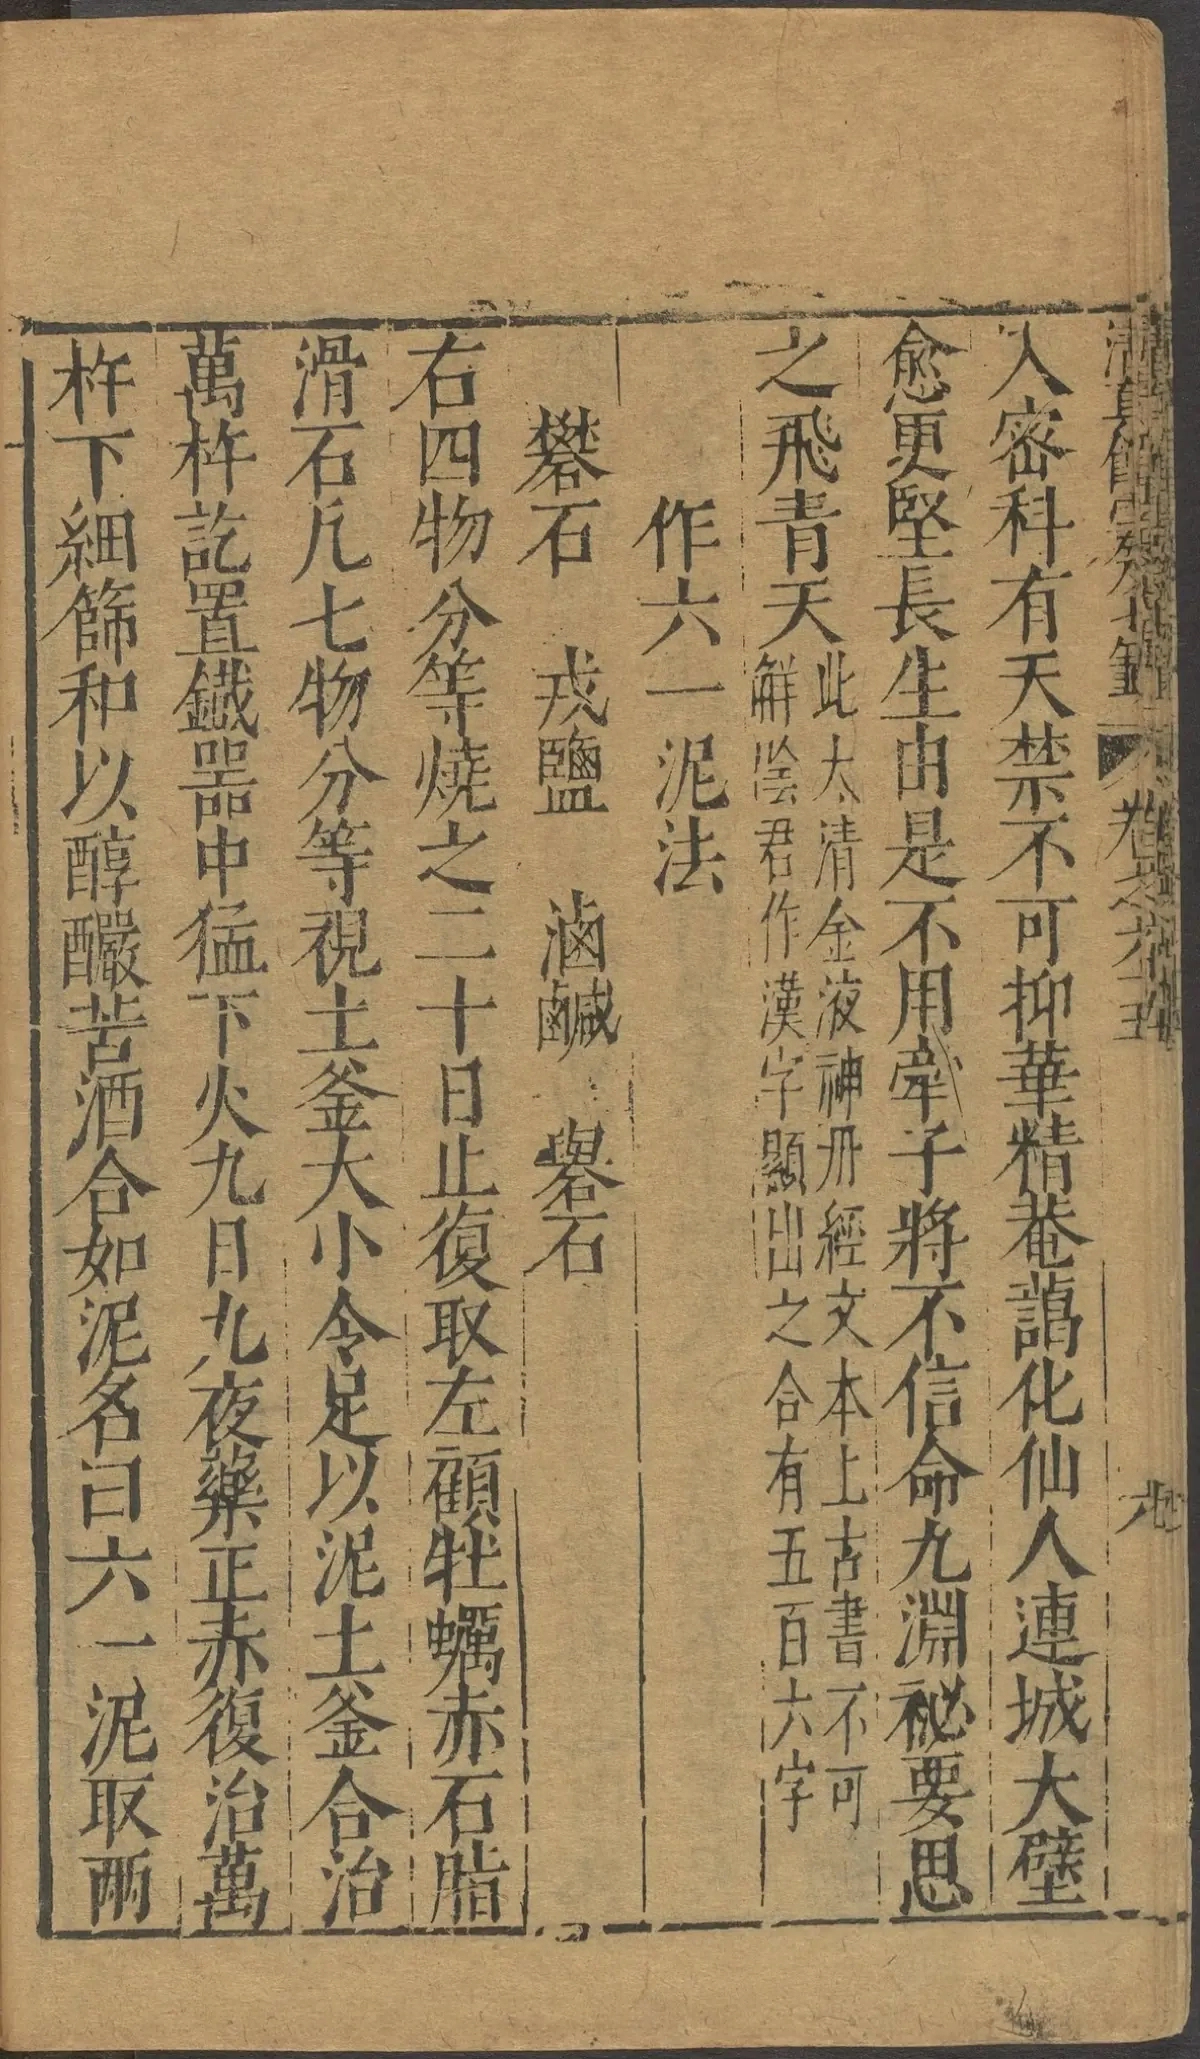 入密科有天禁不可抑華精菴藹化仙人連城大壁
愈更堅長生由是不用牽子將不信命九淵祕要思
之飛青天此太清金液神丹經文本上古書不可
觧陰君作漢字顯出之合有五百六字
作六一泥法
礬石　戎鹽　滷鹹　礜石
右四物分等燒之二十日止復取左顧牡蠣赤石脂
滑石凡七物分等視土釜大小令足以泥土釜合治
萬杵訖置鐵器中猛下火九日九夜藥正赤復治萬
杵下細篩和以醇釅苦酒合如泥名曰六一泥取兩
卷之六十五